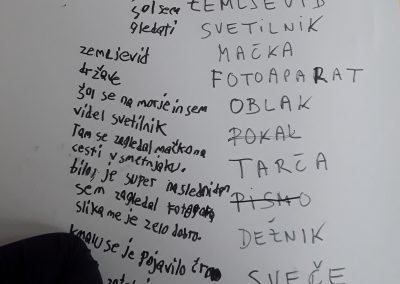 šol sem
gledati
zemljevid
države
šol se na morje in sem
videl svetilnik
Tam se zagledal mačko na
cesti v smetnjaku.
bilo je super naslednidan
sem zagledal
slika me je zelo dobro.
kmalu se je pojavilo
ZEMLJEVID
SVETILNIK
MAČKA
FOTOAPARAT
OBLAK
POKAL
TARČA
PISMO
DEŽNIK
SVEČE